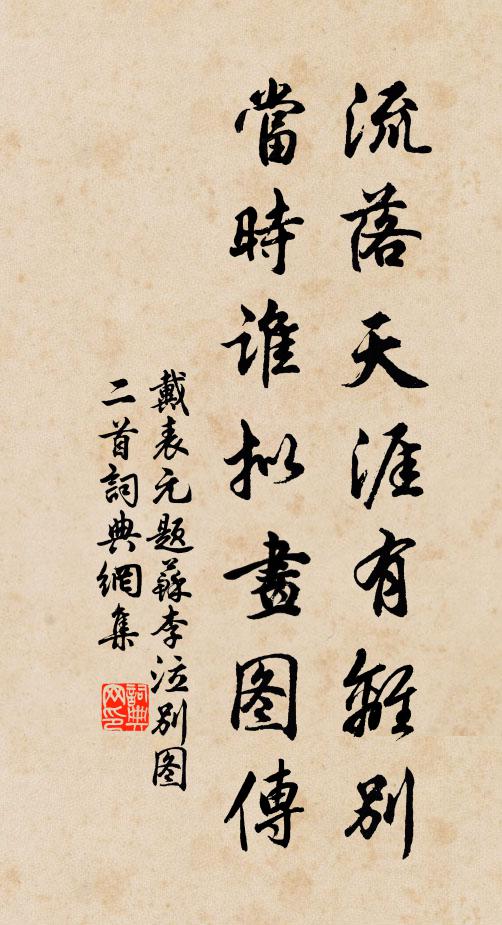 流落天涯有離別
當時誰拟畫图傳
戴表元题蘇李泣别图
二首詞典網集
詞典网印